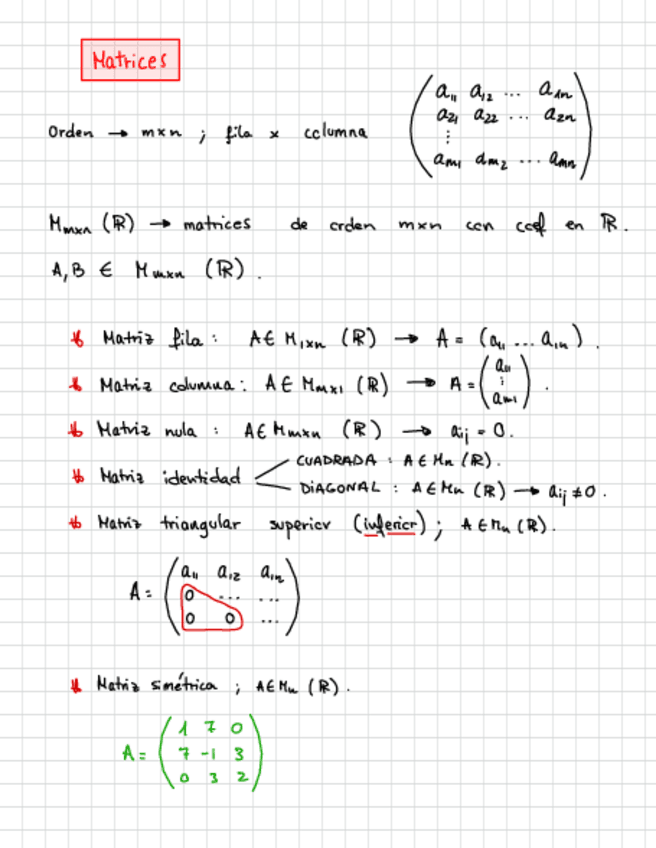 Matrices
Orden → m×n ; fila × columna
( a₁₁ a₁₂ ... a₁ₙ
a₂₁ a₂₂ ... a₂ₙ
⋮
aₘ₁ aₘ₂ ... aₘₙ )
Mₘₓₙ (ℝ) → matrices de orden m×n con coef en ℝ.
A, B ∈ Mₘₓₙ (ℝ).
* Matriz fila : A ∈ M₁ₓₙ (ℝ) → A = (a₁₁ ... a₁ₙ).
* Matriz columna : A ∈ Mₘₓ₁ (ℝ) → A = (a₁₁ ⋮ aₘ₁).
* Matriz nula : A ∈ Mₘₓₙ (ℝ) → aᵢⱼ = 0.
* Matriz identidad
CUADRADA : A ∈ Mₙ (ℝ).
DIAGONAL : A ∈ Mₙ (ℝ) → aᵢⱼ ≠ 0.
* Matriz triangular superior (inferior) ; A ∈ Mₙ (ℝ).
A = ( a₁₁ a₁₂ a₁ₙ
0 ... ...
0 0 ... )
* Matriz simétrica ; A ∈ Mₙ (ℝ).
A = ( 1 7 0
7 -1 3
0 3 2 )